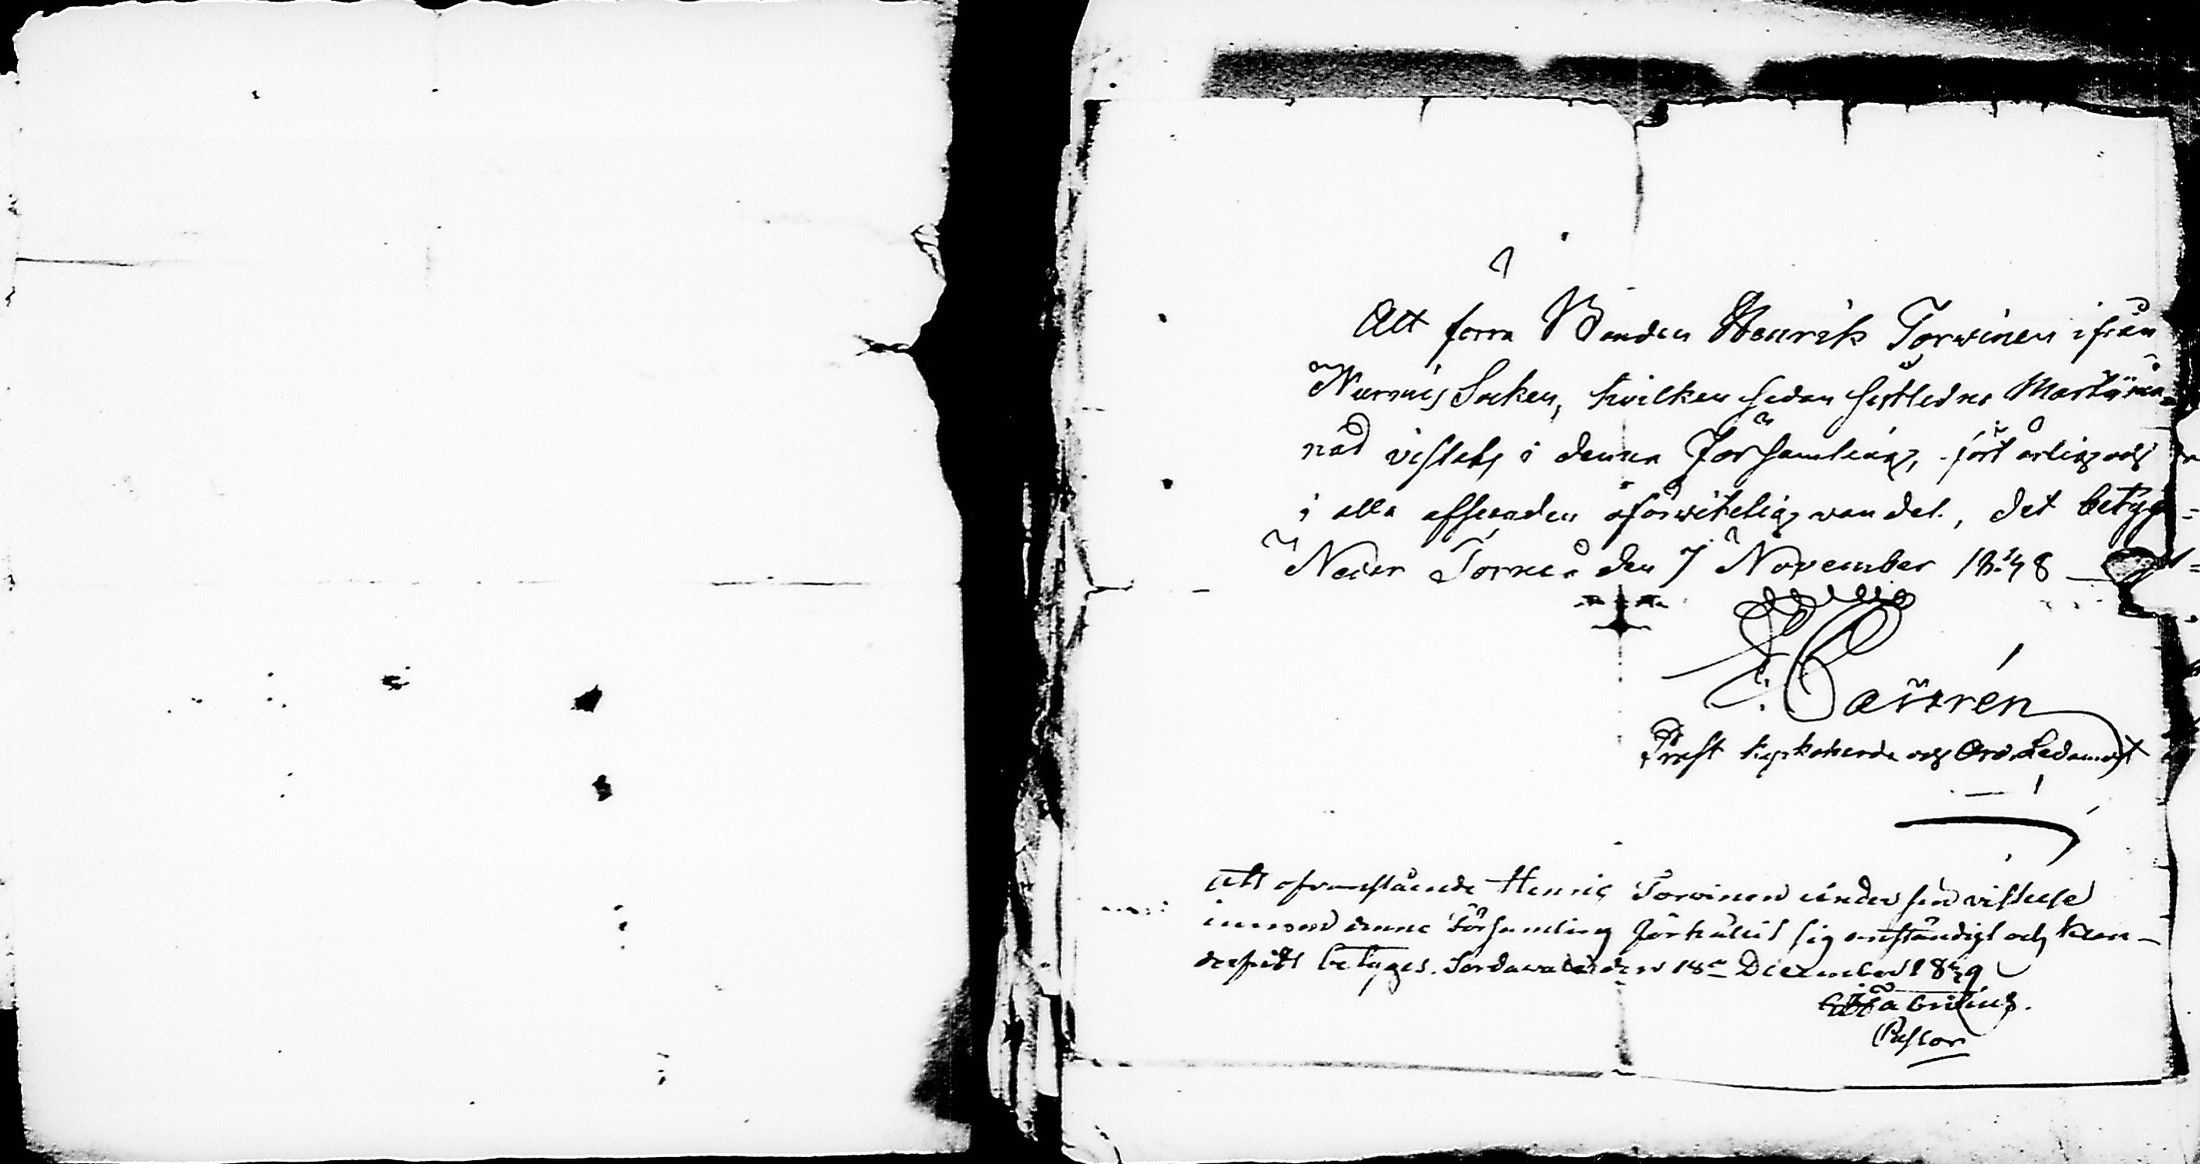 Att förra Bonden Henrik Torvinen ifrån
Nurmis Socken, hvilken sedan sistledne Marti må-
nad vistats i denna Församling, fört ärlig och
i alla afseenden oförvitelig vandel, det betyg
Neder Torneå den 7 November 1848
Castrén
Prost kyrkoherde och Ord. Ledamot
Att ofvanstående Henric Torvinen under sin vistelse
inom denna Församling förhållit sig anständigt och
betyges. Sordavala den 18de December 1849
Fabritius.
Pastor